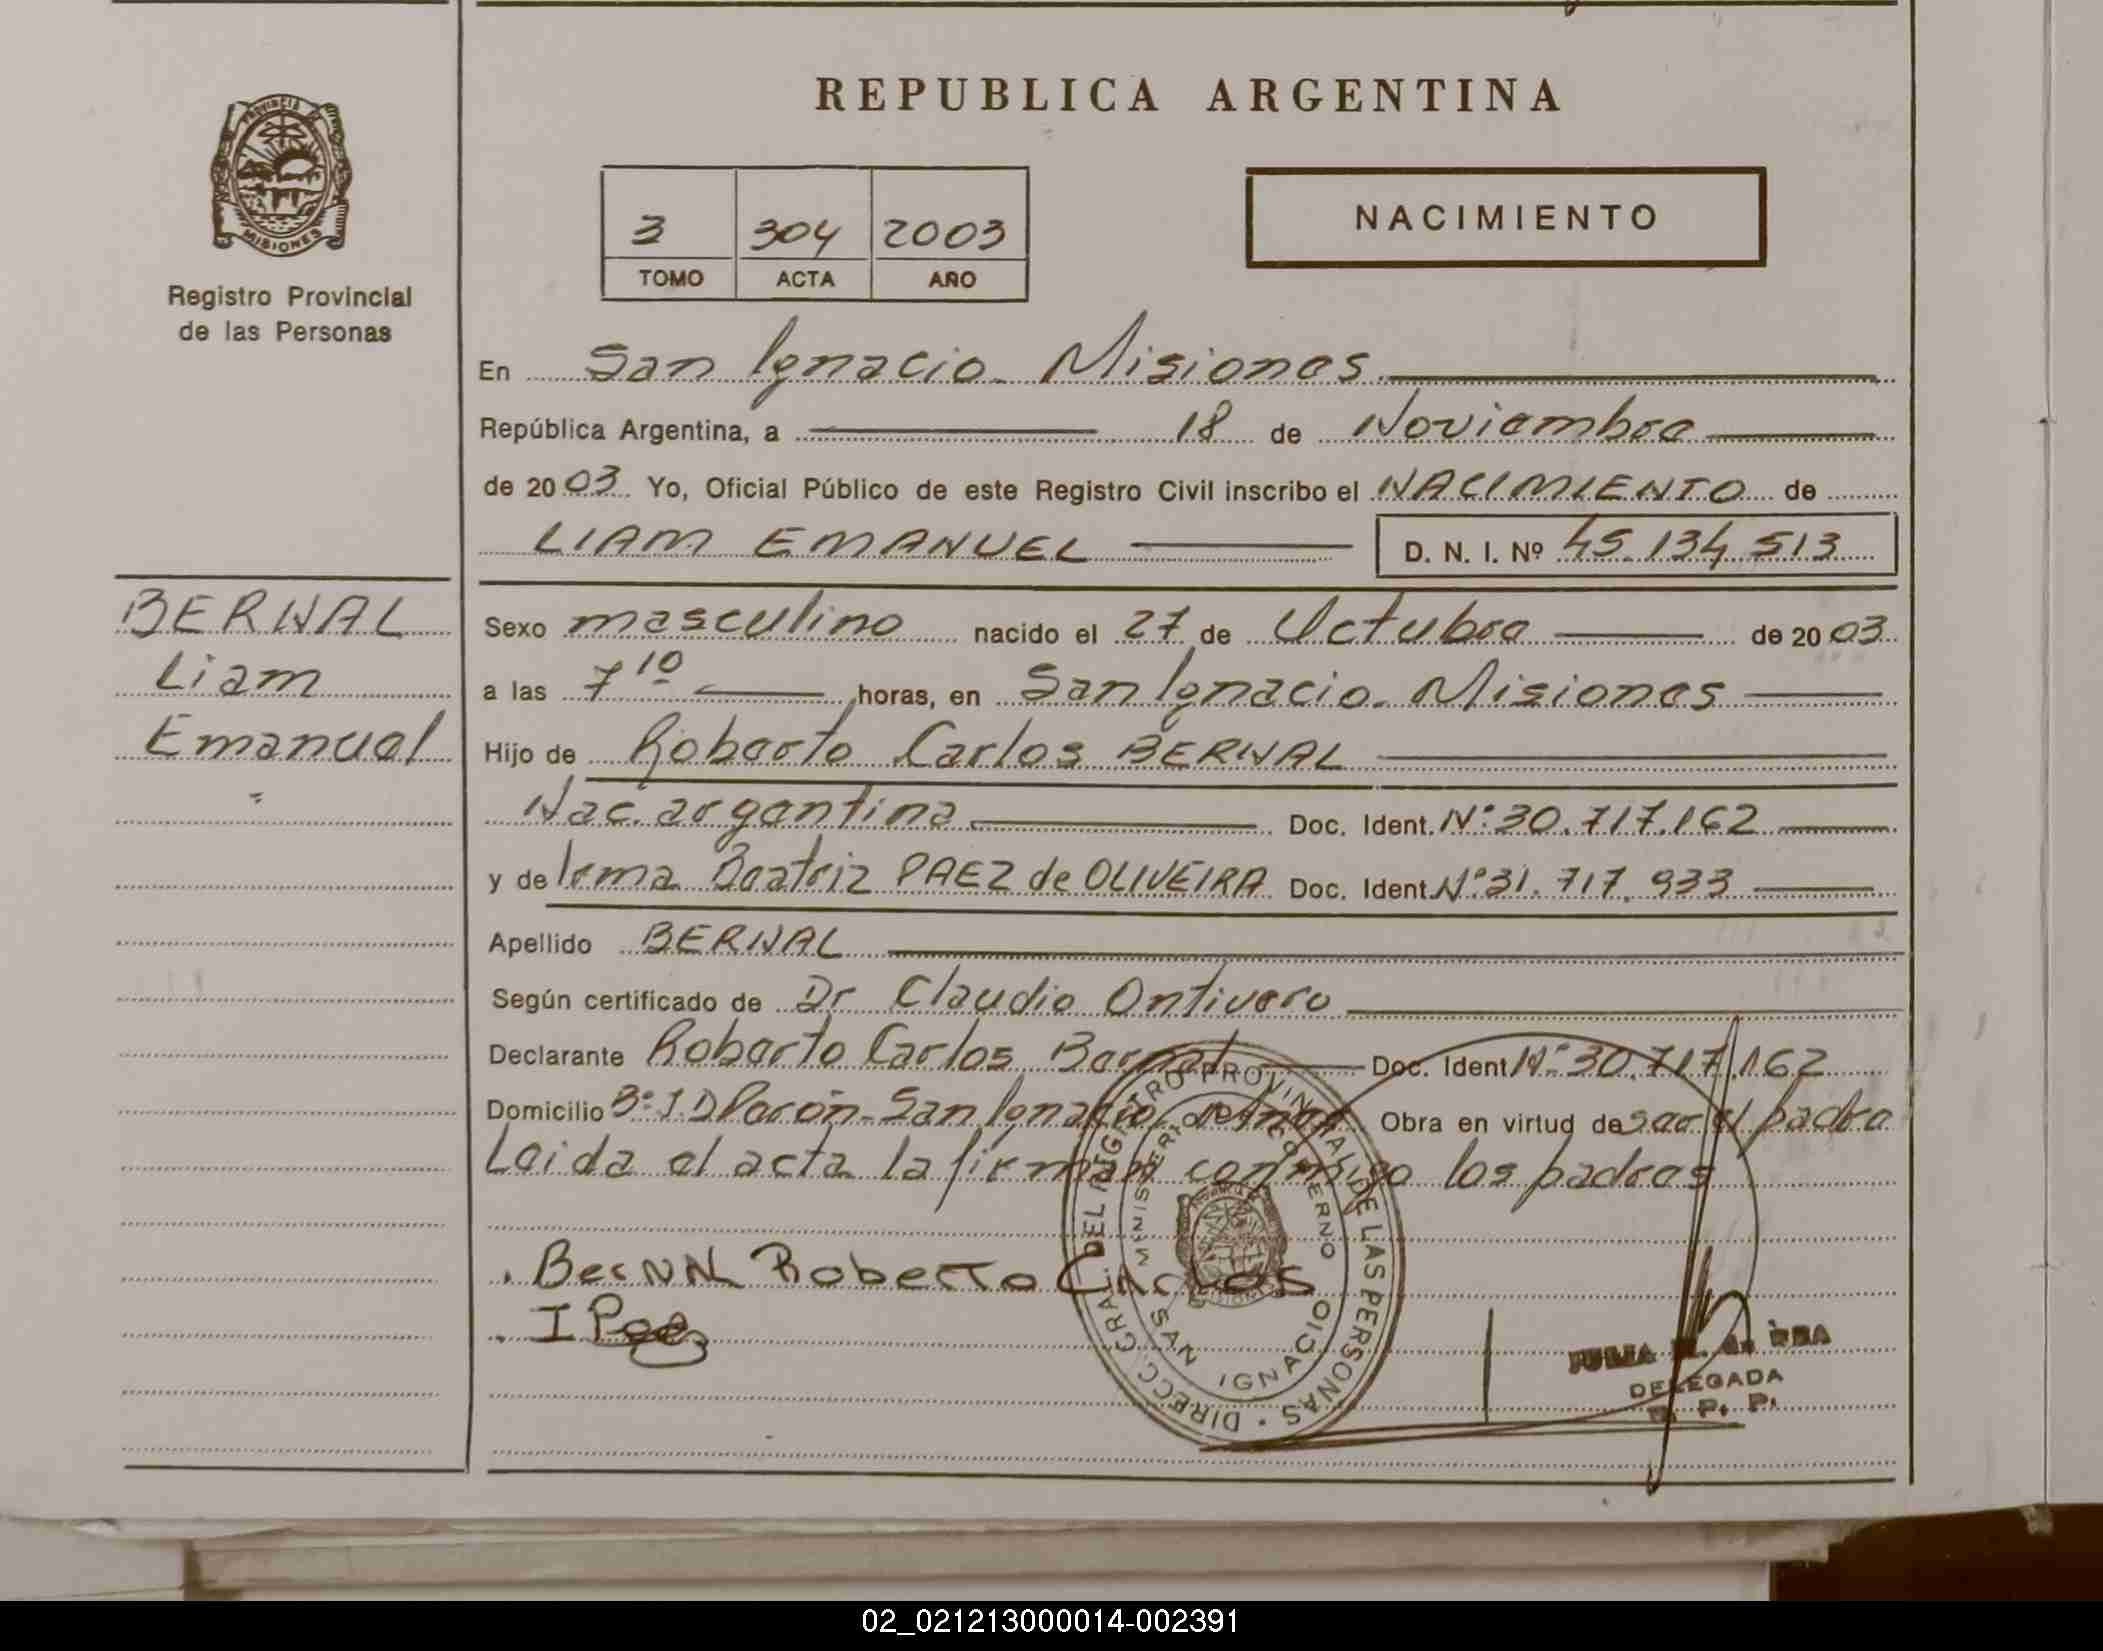 REPUBLICA ARGENTINA
PROVINCIA DE
MISIONES
Registro Provincial
de las Personas
3 304 2003
TOMO ACTA AÑO
NACIMIENTO
En San Ignacio - Misiones
República Argentina, a 18 de Noviembre
de 2003 Yo, Oficial Público de este Registro Civil inscribo el NACIMIENTO de
LIAM EMANUEL D. N. I. Nº 45.134.513
BERNAL
Liam
Emanuel
Sexo masculino nacido el 27 de Octubre de 2003
a las 7 10 horas, en San Ignacio - Misiones
Hijo de Roberto Carlos BERNAL
Nac. argentina Doc. Ident. Nº 30.717.162
y de Irma Beatriz PAEZ de OLIVEIRA Doc. Ident. Nº 31.717.933
Apellido BERNAL
Según certificado de Dr Claudio Ontivero
Declarante Roberto Carlos Bernal Doc. Ident Nº 30.717.162
Domicilio Bº J. D. Perón - San Ignacio Obra en virtud de ser el padre
Leida el acta la firman conmigo los padres
Bernal Roberto Carlos
I Paez
DIRECC. GRAL. DEL REGISTRO PROVINCIAL DE LAS PERSONAS
MINISTERIO DE GOBIERNO
SAN IGNACIO
JULIA
DELEGADA
R. P. P.
02_021213000014-002391